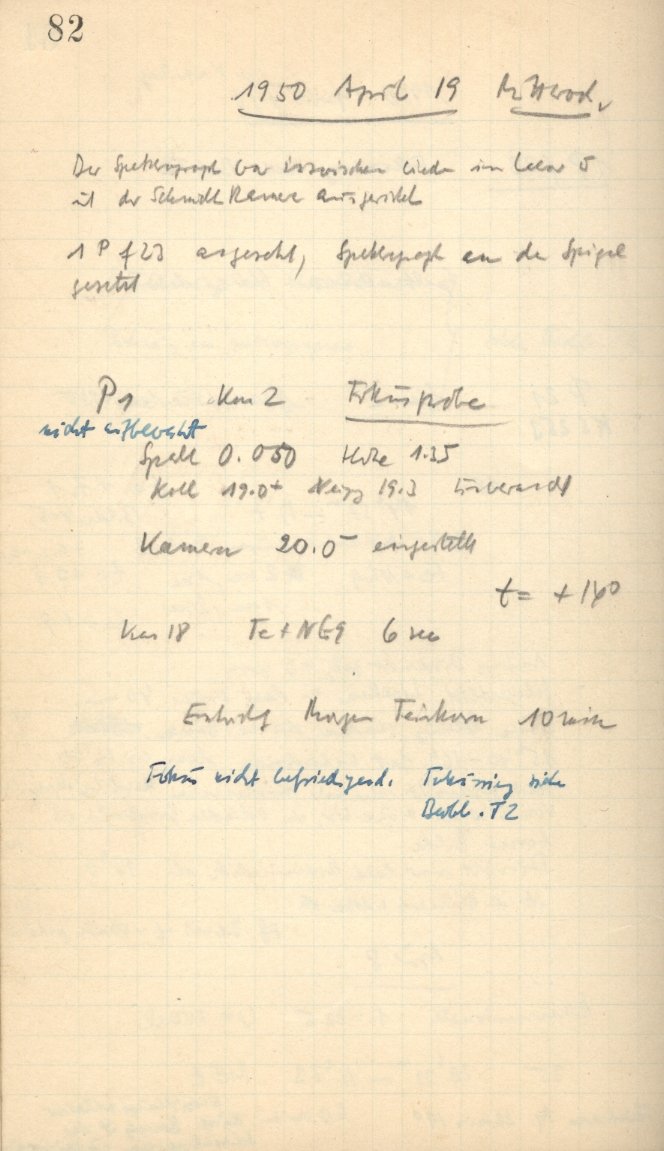 82
1950 April 19 Mittwoch
Der Spektrograph war inzwischen wieder im Labor
mit der Schmidt Kamera ausgerichtet
1 P f23 angesetzt, Spektrograph an den Spiegel
gesetzt
P1 Kam 2 Fokusprobe
nicht aufbewahrt
Spalt 0.050 Höhe 1.35
Koll 19.0+ Neigg 19.3
Kamera 20.0 eingestellt
t = +14°
Kas 18 Fe + NE9 6 sec
Entwickl 10 min
Fokus nicht befriedigend. Fokussierung siehe
Beobb. T2